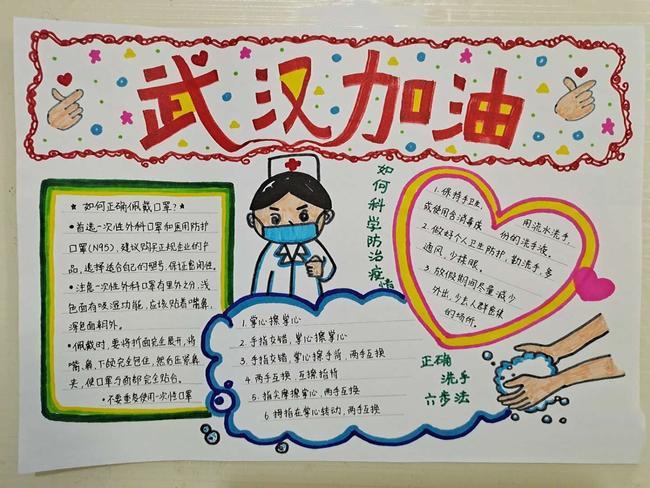 武汉加油
★ 如何正确佩戴口罩? ★
• 首选一次性外科口罩和医用防护
口罩(N95),建议购买正规企业的产
品,选择适合自己的型号,保证密闭性。
• 注意一次性外科口罩有里外之分,浅
色面有吸湿功能,应该贴着嘴鼻,
深色面朝外。
• 佩戴时,要将折面完全展开,将
嘴、鼻、下颌完全包住,然后压紧鼻
夹,使口罩与面部完全贴合。
• 不要重复使用一次性口罩
如何科学防治疫情
1. 保持手卫生,
用流水洗手,
或使用含消毒成
份的洗手液。
2. 做好个人卫生防护,勤洗手,多
通风,少揉眼。
3. 放假期间尽量减少
外出,少去人群密集
的场所。
1. 掌心擦掌心
2. 手指交错,掌心擦掌心
3. 手指交错,掌心擦手背,两手互换
4. 两手互换,互擦指背
5. 指尖摩擦掌心,两手互换
6. 拇指在掌心转动,两手互换
正确
洗手
六步法